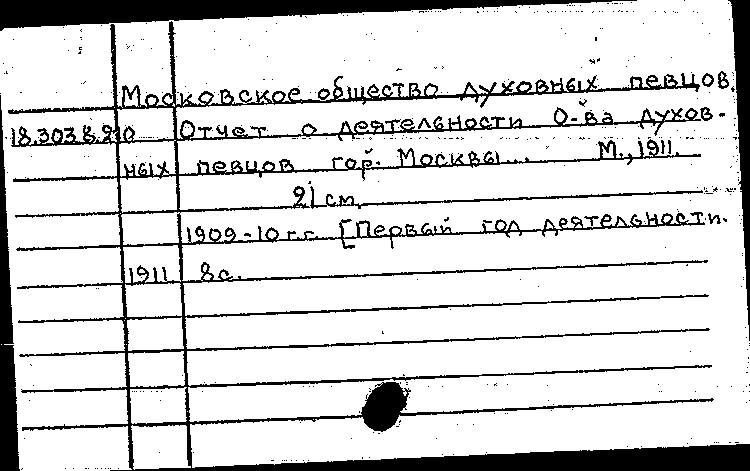 Московское общество духовных певцов.
18.303.8.210 Отчет о деятельности О-ва духов-
ных певцов гор. Москвы... М., 1911.
21 см.
1909-10 г.г. [Первый год деятельности.
1911. 8 с.